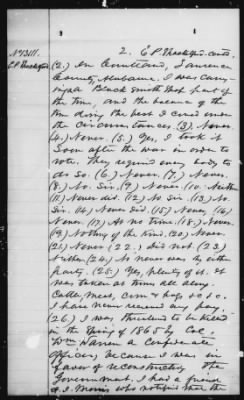 No 13111.
E.P. Shackelford
2. E.P. Shackelford contd
(2.) In Courtland, Lawrence
County, Alabama. I was carry-
ing on a Black smith shop part of
the time, and the balance of the
time doing the best I could under
the circumstances. (3.) Never
(4.) Never. (5.) Yes, I took it
soon after the war in order to
vote. They required every body to
do so. (6.) Never. (7.) Never.
(8.) No Sir. (9.) Never. (10.) Neither
(11.) Never did. (12.) No Sir. (13.) No
Sir. (14.) Never did. (15.) Never. (16.)
Never. (17.) At no time. (18.) Never.
(19.) Nothing of the kind. (20.) Never.
(21.) Never (22.) I did not. (23.)
Neither. (24.) No never was by either
party. (25.) Yes, plenty of it. It
was taken at times all along.
Cattle, meat, Corn
I have never received any pay.
(26.) I was threatened to be killed
in the Spring of 1865 by Col.
Wm Warren a Confederate
Officer, because I was in
favor of reconstructing the
Government. I had a friend
Morris who notified me the